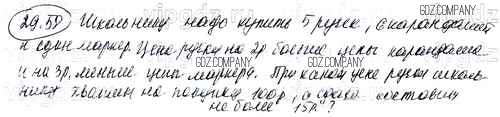 29.50 Школьнику надо купить 5 ручек, 6 карандашей
и один маркер. Цена ручки на 2р больше цены карандаша
и на 3р, меньше цены маркера. При какой цене ручки школь-
нику хватит на покупку 100р, а сдача составит
не более 15р?